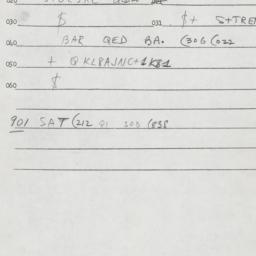 030 $ 031 $+ S+TRE
040 BAR QED BA. (306 (022
050 + QKLBAJNC+1K81
060 $
901 SAT (212 91 300 (838